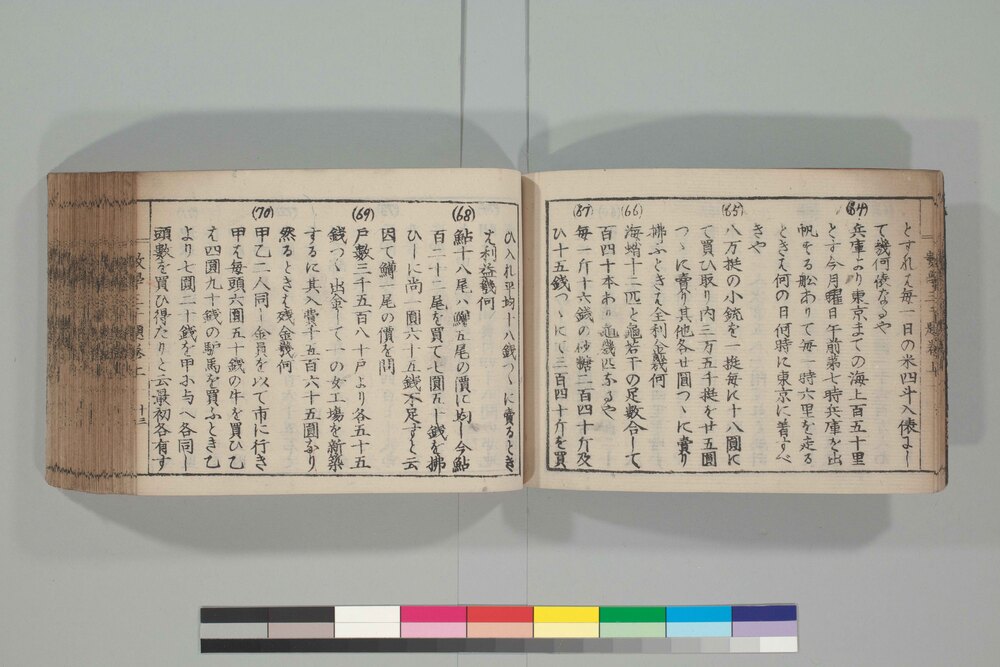 とすれば毎一日の米四斗入俵にし
て幾何俵なるや
(64)
兵庫より東京までの海上百五十里
とす今月曜日午前第七時兵庫を出
帆する舩ありて毎一時六里を走る
ときは何の日何時に東京に着すべ
きや
(65)
八万挺の小銃を一挺毎に十八圓に
て買ひ取り内三万五千挺を廿五圓
つゝに賣り其他各廿圓つゝに賣り
拂ふときは全利金幾何
(66)
海蛸十二匹と龜若干の足數合して
百四十本あり龜幾匹なるや
(67)
毎一斤十六錢の砂糖二百四十斤及
ひ十五錢つゝにて三百四十斤を買
ひ入れ平均十八錢つゝに賣るとき
は利益幾何
(68)
鮎十八尾ハ鰡五尾の價に均し今鮎
百二十二尾を買て七圓五十錢を拂
ひしに尚一圓六十五錢不足すと云
因て鰡一尾の價を問
(69)
戸數三千五百八十戸より各五十五
錢つゝ出金して一の女工場を新築
するに其入費千五百六十五圓なり
然るときは残金幾何
(70)
甲乙二人同し金員を以て市に行き
甲は毎頭六圓五十錢の牛を買ひ乙
は四圓九十錢の驢馬を買ふとき乙
より七圓二十錢を甲に与へ各同し
頭數を買ひ得たりと云最初各有す
十三